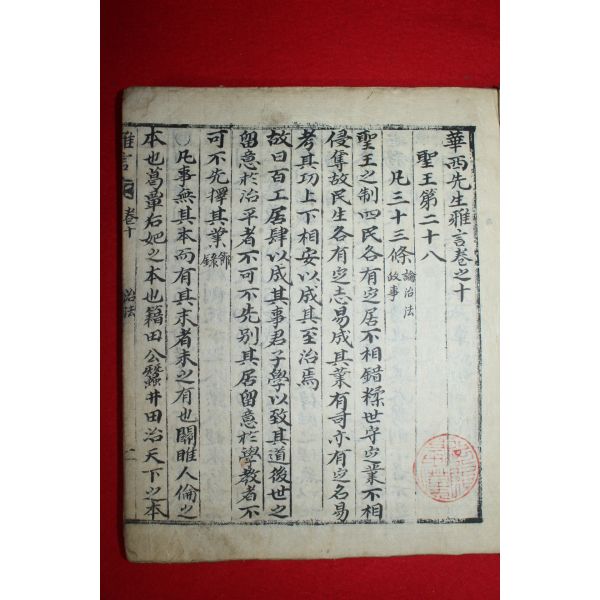 華西先生雅言卷之十
聖王第二十八
凡三十三條 論治法故事
聖王之制四民各有㝎居不相錯糅世守㝎業不相
侵奪故民生各有㝎志易成其業有司亦有㝎名易
考其功上下相安以成其至治焉
故曰百工居肆以成其事君子學以致其道後世之
留意於治平者不可不先別其居留意於學教者不
可不先擇其業 錄
○凡事無其本而有其末者未之有也關雎人倫之
本也葛蕈后妃之本也籍田公蠶井田治天下之本
雅言 卷十 治法